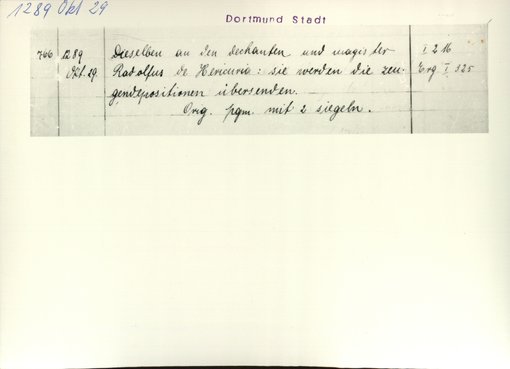 1289 Okt 29
Dortmund Stadt
766 1289 Dieselben an den dechanten und magister I 216
Okt. 29. Radolfus de Hericuria: sie werden die zeu- Erg I 325
gendepositionen übersenden.
Orig. pgm. mit 2 siegeln.